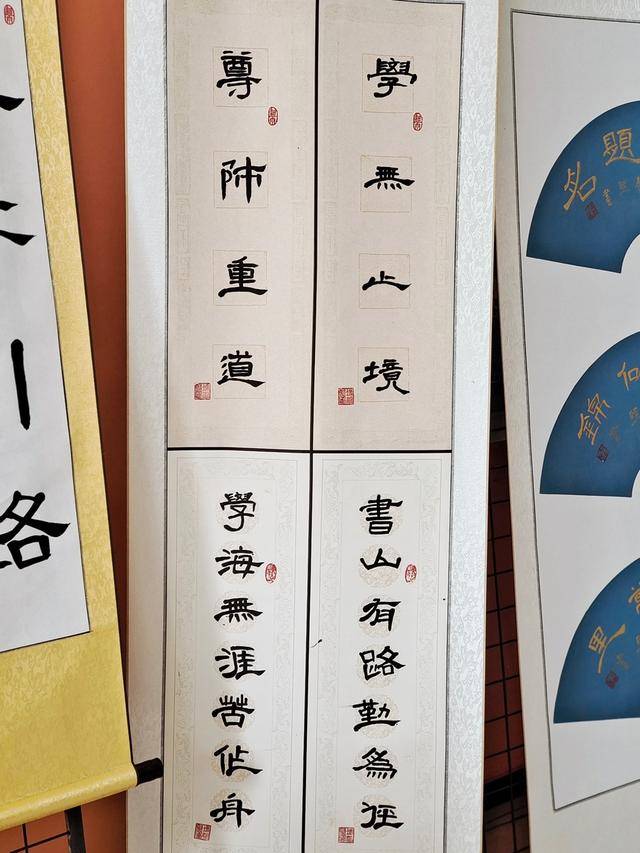 題名
錦
里
學無止境
尊師重道
書山有路勤為径
學海無涯苦作舟
路